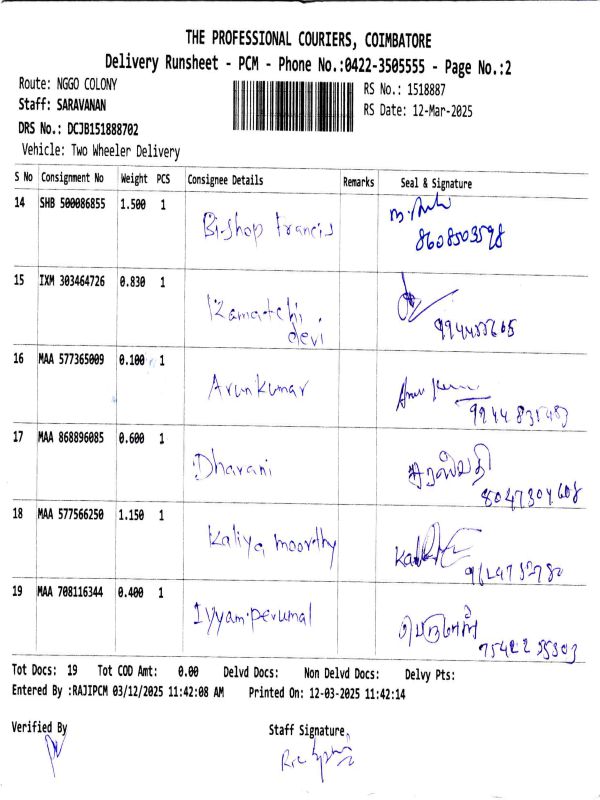 THE PROFESSIONAL COURIERS, COIMBATORE
Delivery Runsheet - PCM - Phone No.:0422-3505555 - Page No.:2
Route: NGGO COLONY RS No.: 1518887
Staff: SARAVANAN RS Date: 12-Mar-2025
DRS No.: DCJB151888702
Vehicle: Two Wheeler Delivery
S No Consignment No Weight PCS Consignee Details Remarks Seal & Signature
14 SHB 500086855 1.500 1 Bishop Francis
8608503598
15 IXM 303464726 0.830 1 Kamatchi
devi
16 MAA 577365009 0.100 1 Arunkumar
17 MAA 868896085 0.600 1 Dharani
8047304608
18 MAA 577566250 1.150 1 Kaliya moorthy
19 MAA 708116344 0.400 1 Iyyamperumal பெருமாள்
Tot Docs: 19 Tot COD Amt: 0.00 Delvd Docs: Non Delvd Docs: Delvy Pts:
Entered By :RAJIPCM 03/12/2025 11:42:08 AM Printed On: 12-03-2025 11:42:14
Verified By Staff Signature